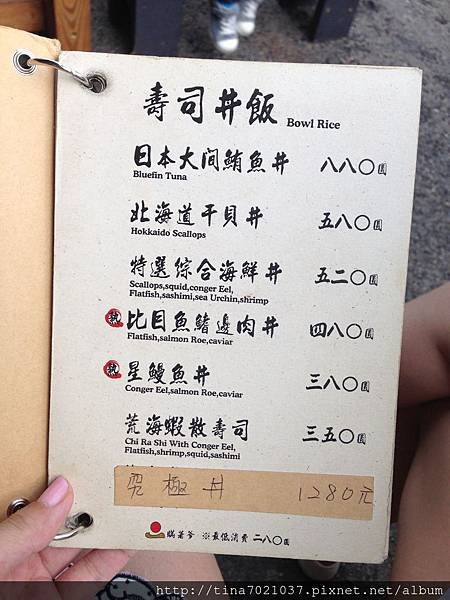 壽司丼飯 Bowl Rice
日本大间鮪魚丼 八八〇圓
Bluefin Tuna
北海道干貝丼 五八〇圓
Hokkaido Scallops
特選綜合海鮮丼 五二〇圓
Scallops,squid,conger Eel,
Flatfish,sashimi,sea Urchin,shrimp
熱 比目魚鰭邊肉丼 四八〇圓
Flatfish,salmon Roe,caviar
熱 星鰻魚丼 三八〇圓
Conger Eel,salmon Roe,caviar
荒海蝦散壽司 三五〇圓
Chi Ra Shi With Conger Eel,
Flatfish,shrimp,squid,sashimi
究極丼 1280元
瞞著爹 ※最低消費 二八〇圓
http://tina7021037.pixnet.net/album